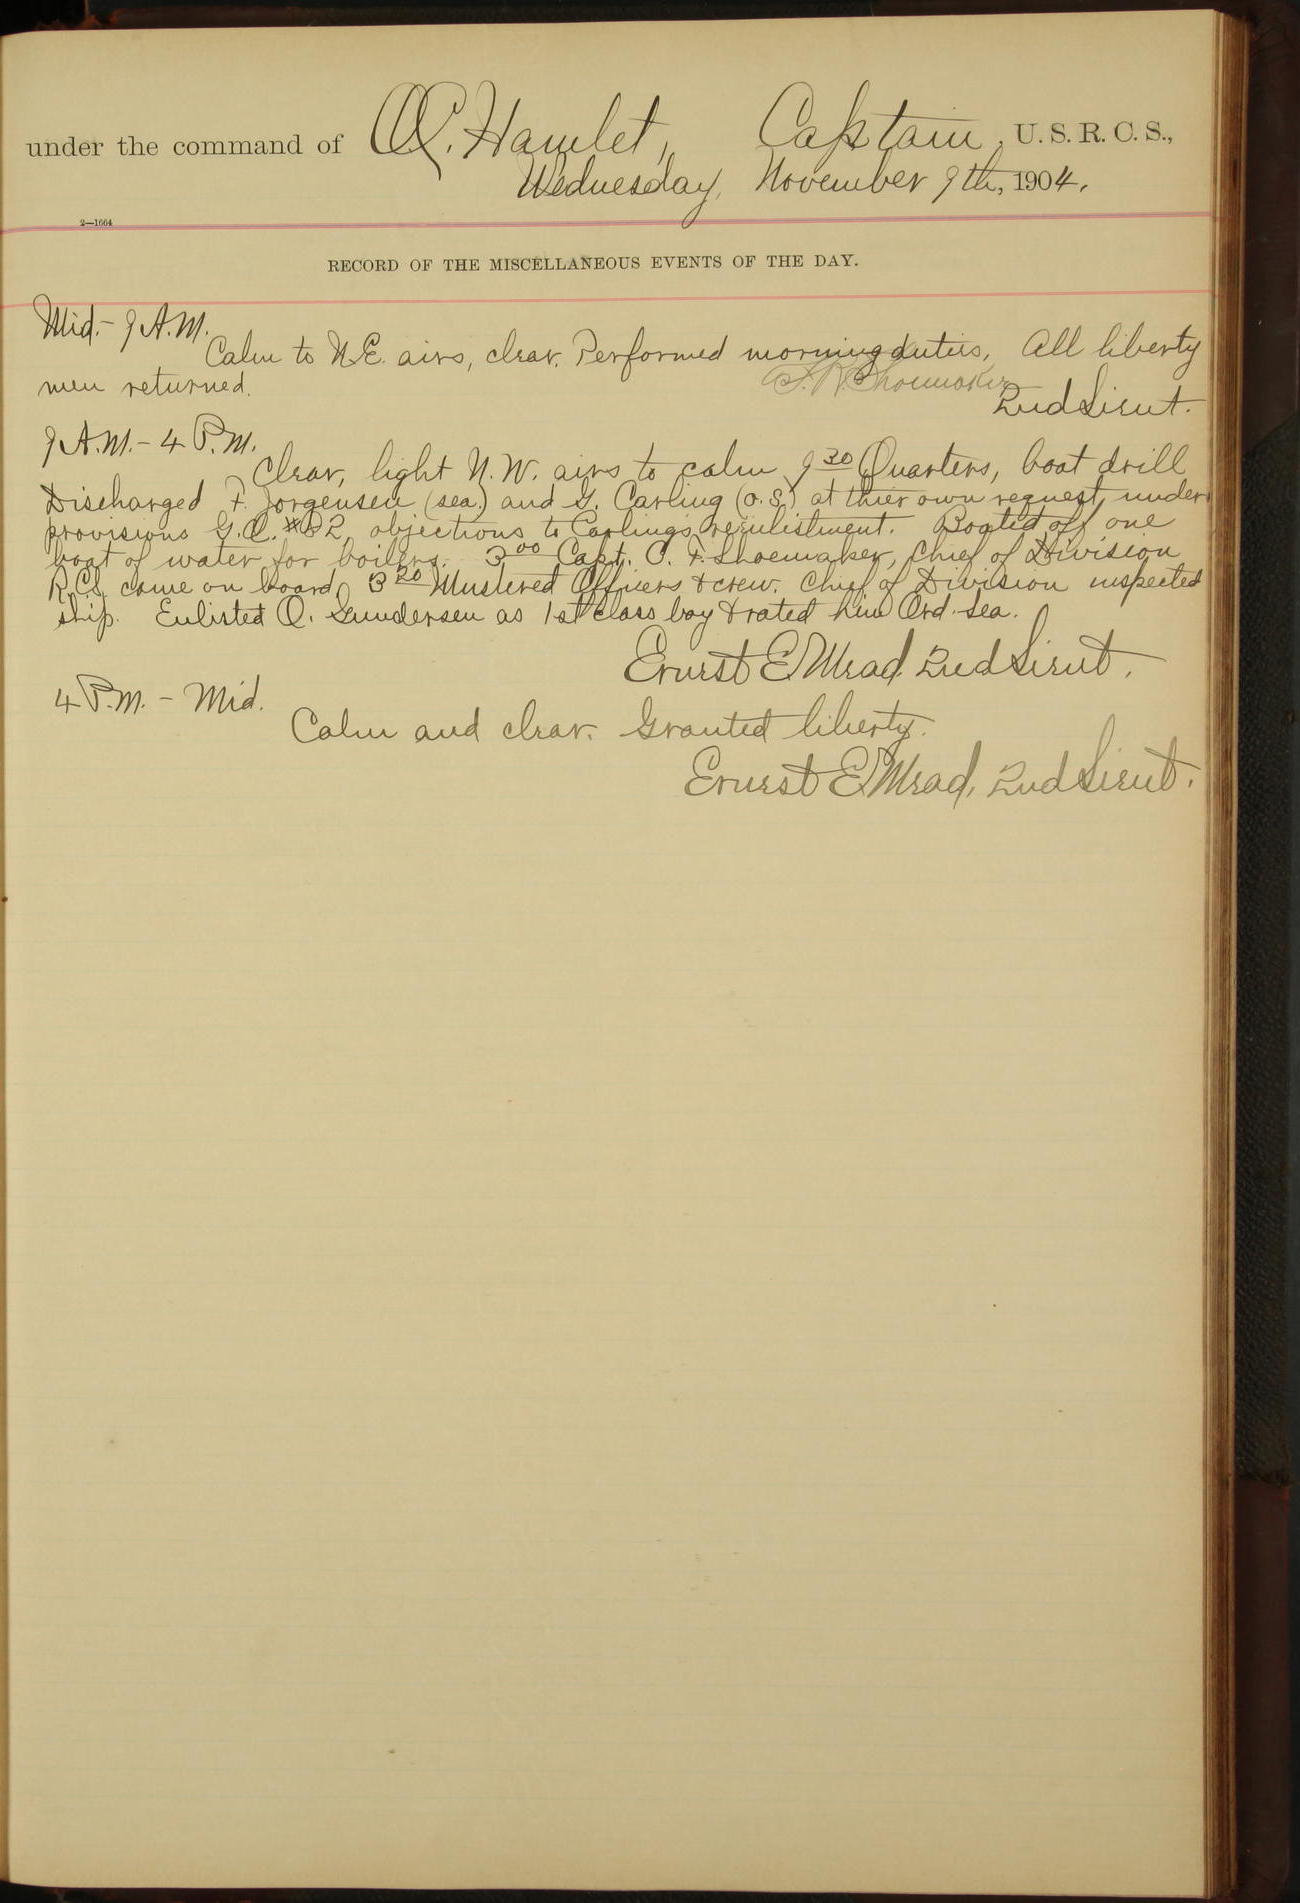 under the command of O.C. Hamlet, Captain, U.S.R.C.S.,
Wednesday, November 9th, 1904.
2—1664
RECORD OF THE MISCELLANEOUS EVENTS OF THE DAY.
Mid.- 9 A.M.
Calm to N.E. airs, clear. Performed morning duties. All liberty
men returned.
F. R. Shoemaker
2nd Lieut.
9 A.M. - 4 P.M.
Clear, light N.W. airs to calm 9 30 Quarters, boat drill
Discharged F. Jorgensen (sea.) and G. Carling (o.s.) at thier own request, under
provisions G.O. #32, objections to Carlings reenlistment. Boated off one
boat of water for boilers. 3 00 Capt. C. F. Shoemaker, Chief of Division
R.C.S. came on board 3 20 Mustered Officers & crew. Chief of Division inspected
ship. Enlisted O. Gundersen as 1st class boy & rated him Ord. Sea.
Ernest E. Mead 2nd Lieut.
4 P.M. - Mid.
Calm and clear. Granted liberty.
Ernest E. Mead, 2nd Lieut.